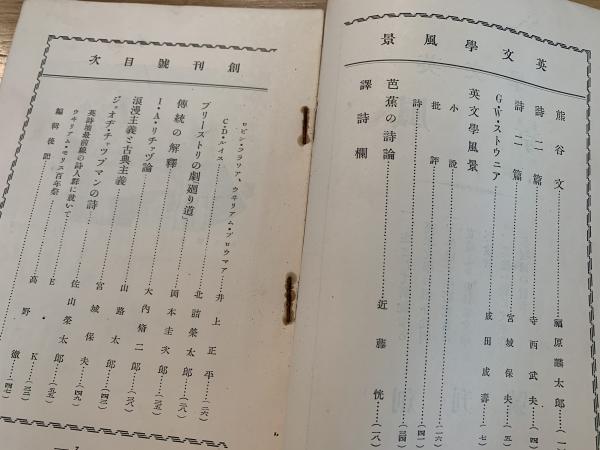 英文學風景
熊谷文……福原麟太郎…(一)
詩二篇……寺西武夫…(四)
詩二篇……宮城保夫…(五)
G・W・ストウニア……成田成壽…(七)
英文學風景
小說……(一六)
批評……(四一)
詩……(三四)
芭蕉の詩論……近藤恍…(一八)
譯詩欄
創刊號目次
ロビン・フラリア、ウヰリアム・プロウマア
C・D・ルイス……井上正平…(二六)
プリーストリの劇「廻り道」……北詰榮太郎…(二八)
傳統の解釋……岡本圭次郎…(三五)
I・A・リチャヅ論……大內脩二郎…(三八)
浪漫主義と古典主義……山路太郎…(四三)
ジョオヂ・チャップマンの詩……宮城保夫…
英詩壇最前線の詩人群に就いて……佐山榮太郎…(五五)
ウヰリアム・モリス百年祭……E・K…(三三)
編輯後記……高野徹…(四七)